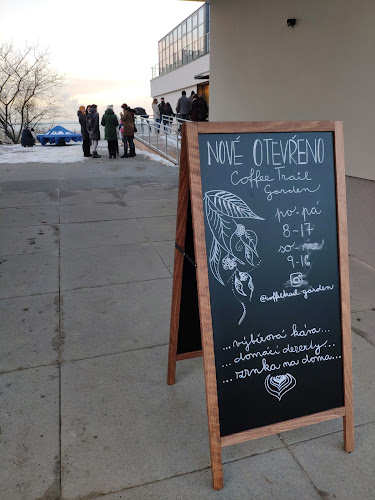 NOVĚ OTEVŘENO
Coffee Trail
Garden
po-pá
8-17
so-
9-16
@coffeetrail.garden
...výběrová káva...
...domácí dezerty...
...zrnka na doma...